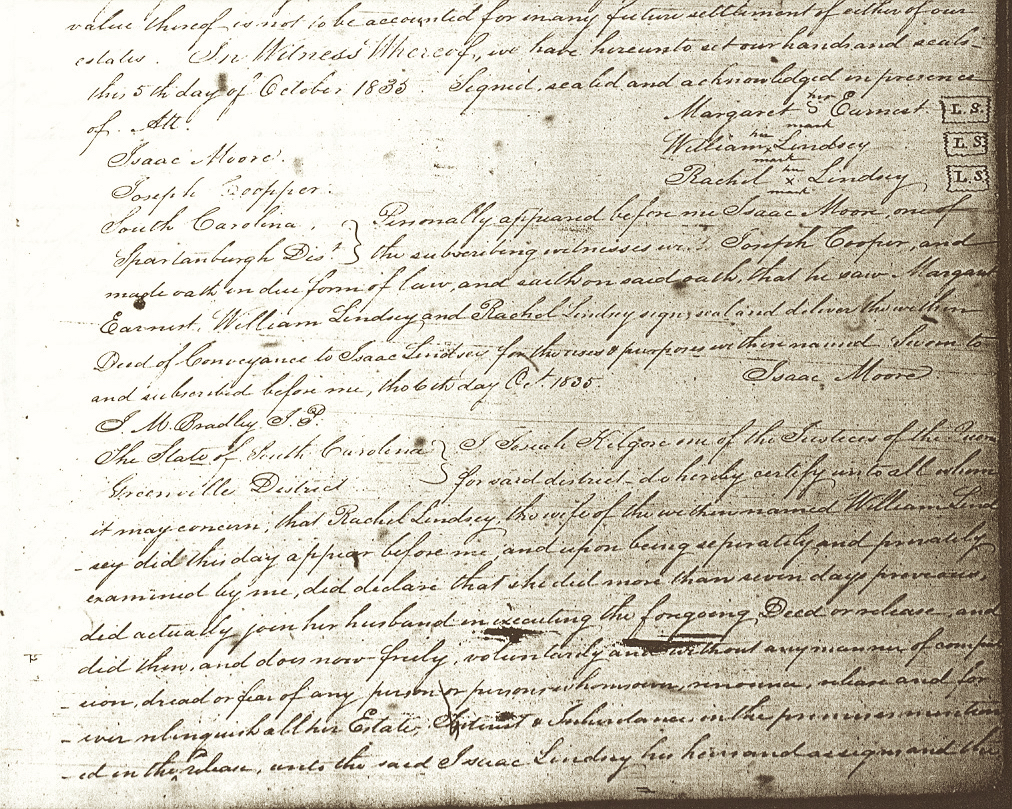 value thereof is not to be accounted for in any future settlement of either of our
estates. In Witness Whereof, we have hereunto set our hands and seals
this 5th day of October 1835. Signed, sealed and acknowledged in presence
of. Att.
Margaret her S mark Earnest L.S
Isaac Moore.
William his x mark Lindsey L.S
Joseph Coopper.
Rachel her x mark Lindsey L.S
South Carolina,
Spartanburgh Dist.
Personally appeared before me Isaac Moore, one of
the subscribing witnesses with Joseph Cooper, and
made oath in due form of law, and saith on said oath, that he saw Margaret
Earnest, William Lindsey and Rachel Lindsey sign, seal and deliver the within
Deed of Conveyance to Isaac Lindsey for the uses & purposes within named. Sworn to
and subscribed before me, the 6th day Oct. 1835.
Isaac Moore
J. M. Bradley J.P.
The State of South Carolina
Greenville District
I Josiah Kilgore one of the Justices of the Quorum
for said district do hereby certify unto all whom
it may concern, that Rachel Lindsey the wife of the within named William Lind
-sey did this day appear before me, and upon being seperately and privately
examined by me, did declare that she did more than seven days previous,
did actually join her husband in executing the foregoing Deed or release and
did then, and does now freely, voluntarily and without any manner of compul
-sion, dread or fear of any person or persons whomsoever, renounce, release and for
-ever relinquish all her Estate, Interest & Inheritance in the premises mention
-ed in the release, unto the said Isaac Lindsey his heirs and assigns and the